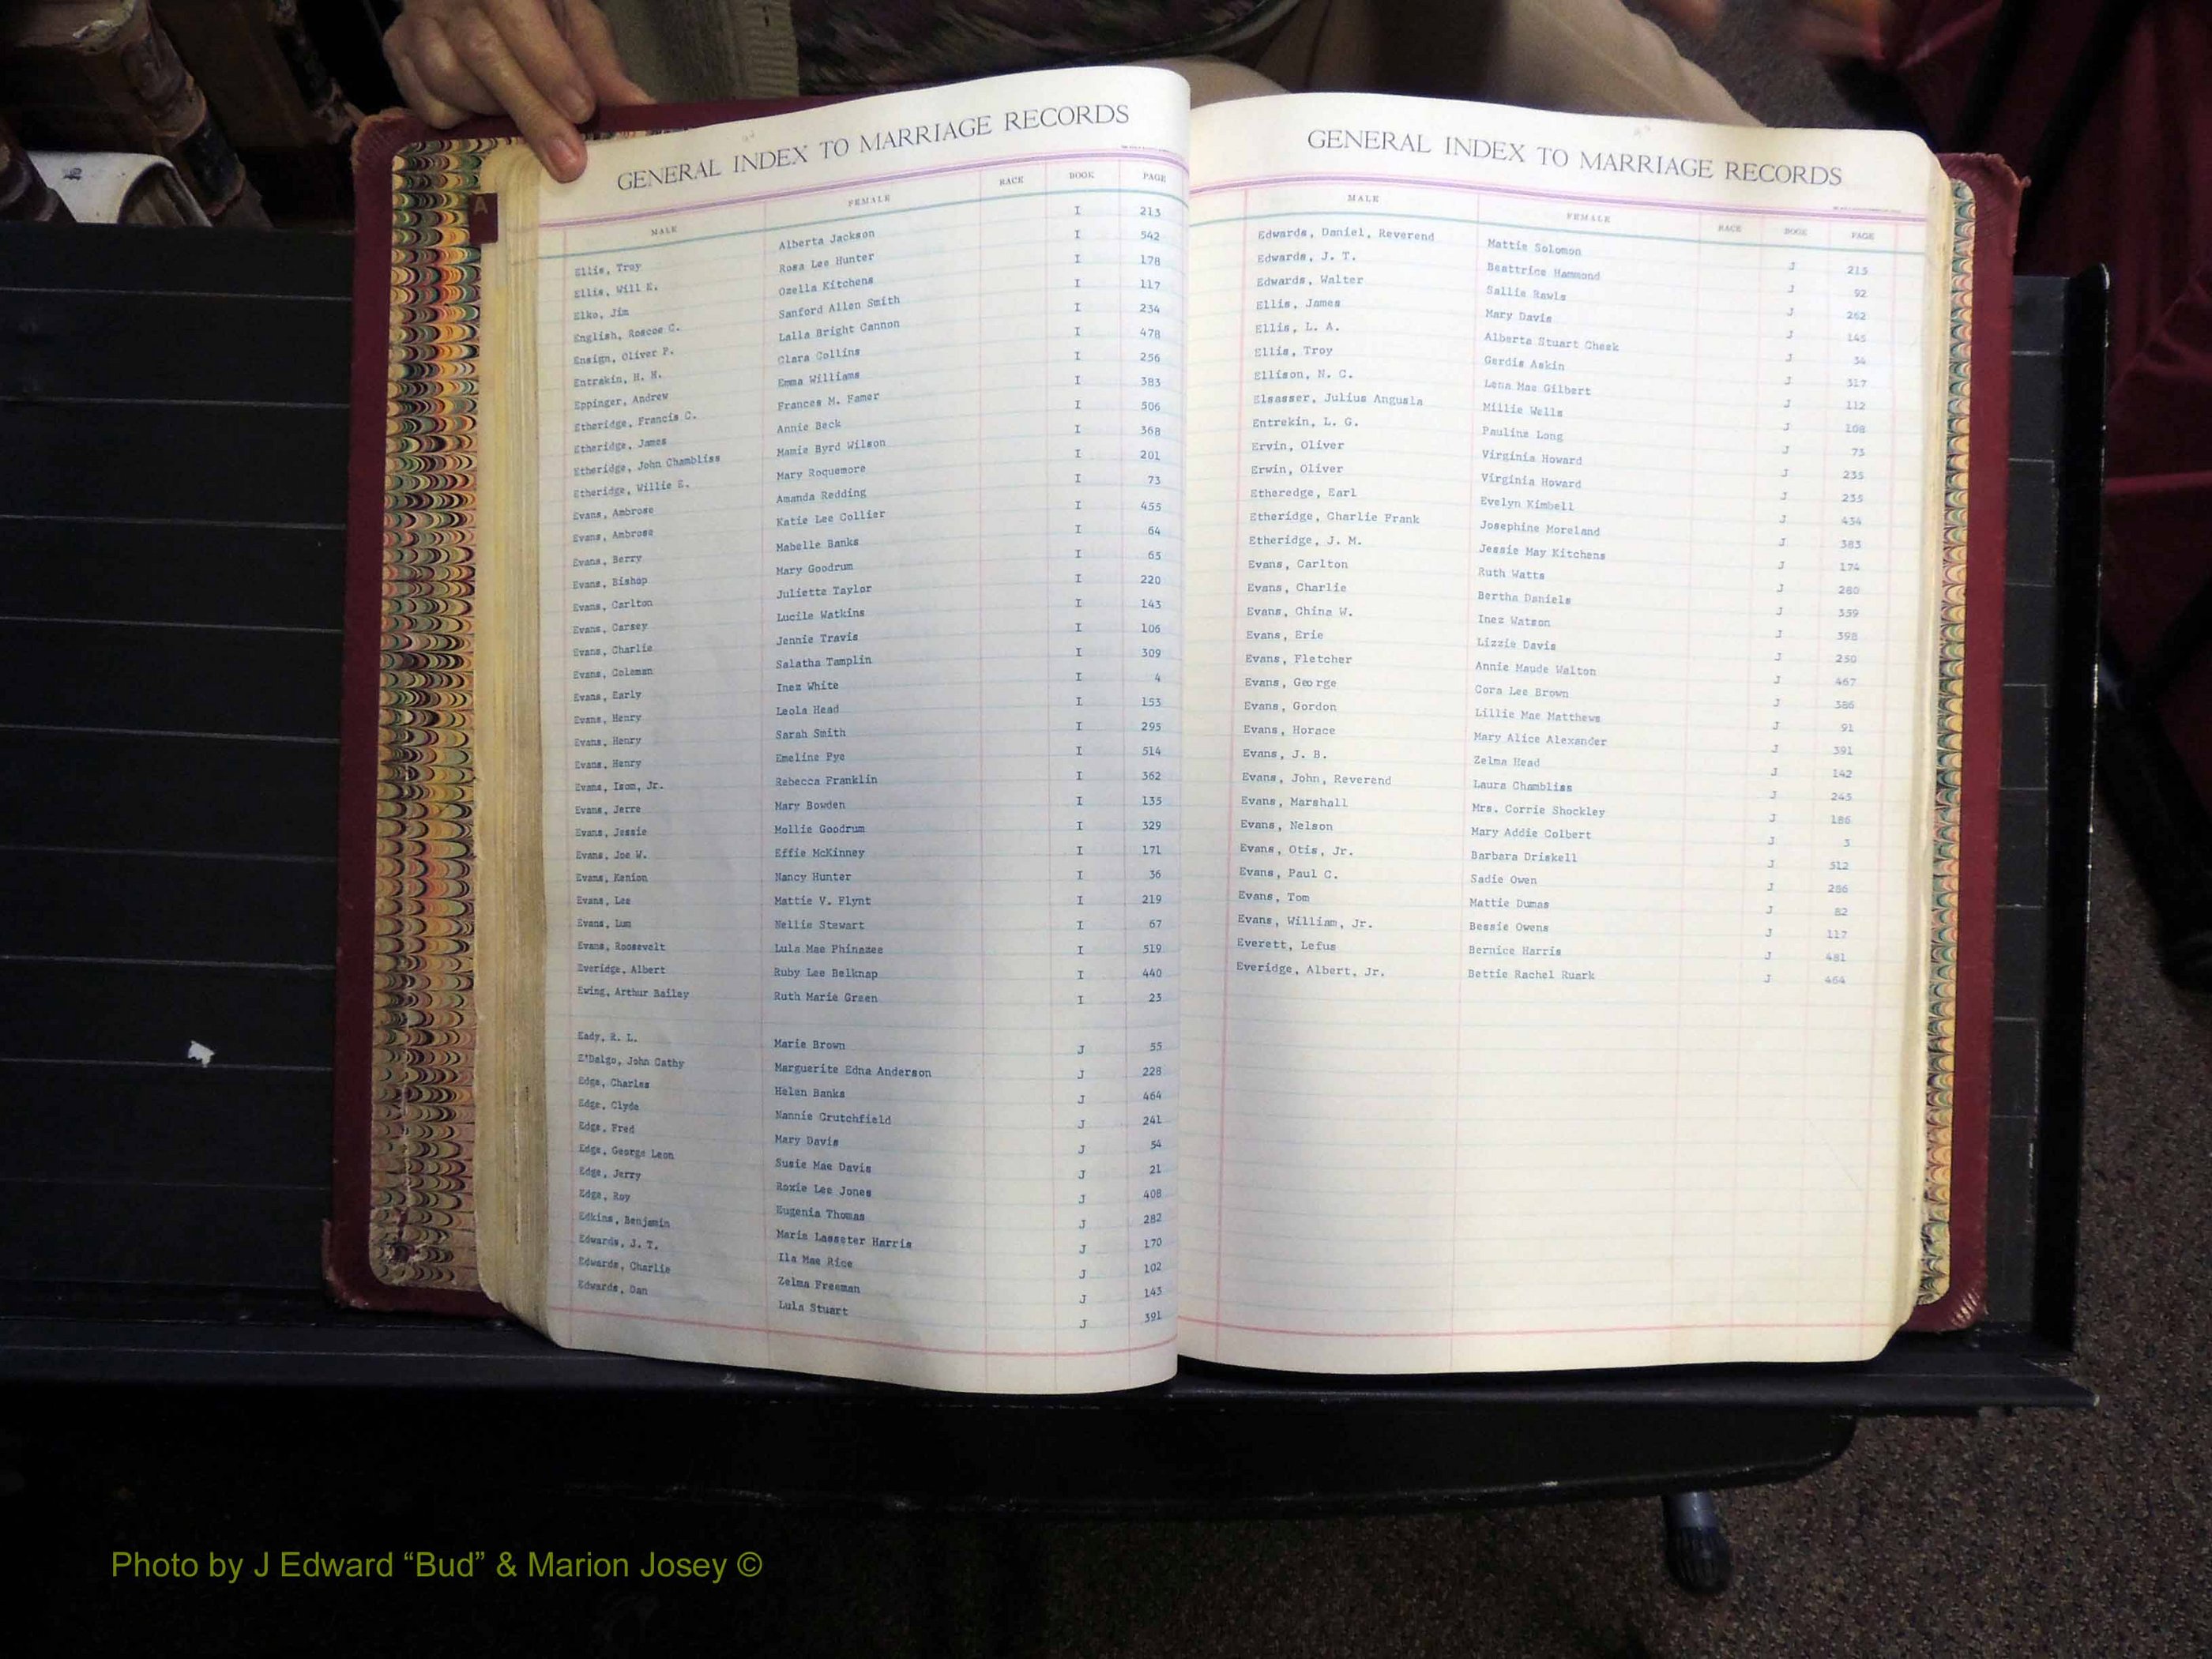 GENERAL INDEX TO MARRIAGE RECORDS
MALE FEMALE RACE BOOK PAGE
Ellis, Troy Alberta Jackson I 213
Ellis, Will E. Rosa Lee Hunter I 542
Elko, Jim Ozella Kitchens I 178
English, Roscoe C. Sanford Allen Smith I 117
Ensign, Oliver P. Lalla Bright Cannon I 234
Entrekin, H. M. Clara Collins I 478
Eppinger, Andrew Emma Williams I 256
Etheridge, Francis C. Frances M. Famer I 383
Etheridge, James Annie Beck I 506
Etheridge, John Chambliss Mamie Byrd Wilson I 368
Etheridge, Willie E. Mary Roquemore I 201
Evans, Ambrose Amanda Redding I 73
Evans, Ambrose Katie Lee Collier I 455
Evans, Berry Mabelle Banks I 64
Evans, Bishop Mary Goodrum I 65
Evans, Carlton Juliette Taylor I 220
Evans, Carsey Lucile Watkins I 143
Evans, Charlie Jennie Travis I 106
Evans, Coleman Salatha Tamplin I 309
Evans, Early Inez White I 4
Evans, Henry Leola Head I 153
Evans, Henry Sarah Smith I 295
Evans, Henry Emeline Pye I 514
Evans, Isom, Jr. Rebecca Franklin I 362
Evans, Jerre Mary Bowden I 135
Evans, Jessie Mollie Goodrum I 329
Evans, Joe W. Effie McKinney I 171
Evans, Kenion Nancy Hunter I 36
Evans, Lee Mattie V. Flynt I 219
Evans, Lum Nellie Stewart I 67
Evans, Roosevelt Lula Mae Phinazee I 519
Everidge, Albert Ruby Lee Belknap I 440
Ewing, Arthur Bailey Ruth Marie Green I 23
Eady, R. L. Marie Brown J 55
E'Dalgo, John Cathy Marguerite Edna Anderson J 228
Edge, Charles Helen Banks J 464
Edge, Clyde Nannie Crutchfield J 241
Edge, Fred Mary Davis J 54
Edge, George Leon Susie Mae Davis J 21
Edge, Jerry Roxie Lee Jones J 408
Edge, Roy Eugenia Thomas J 282
Edkins, Benjamin Marie Lasseter Harris J 170
Edwards, J. T. Ila Mae Rice J 102
Edwards, Charlie Zelma Freeman J 143
Edwards, Dan Lula Stuart J 391
GENERAL INDEX TO MARRIAGE RECORDS
MALE FEMALE RACE BOOK PAGE
Edwards, Daniel, Reverend Mattie Solomon J 213
Edwards, J. T. Beattrice Hammond J 92
Edwards, Walter Sallie Rawls J 262
Ellis, James Mary Davis J 145
Ellis, L. A. Alberta Stuart Cheek J 34
Ellis, Troy Gerdis Askin J 317
Ellison, N. C. Lena Mae Gilbert J 112
Elsasser, Julius Angusla Millie Wells J 108
Entrekin, L. G. Pauline Long J 73
Ervin, Oliver Virginia Howard J 235
Erwin, Oliver Virginia Howard J 235
Etheredge, Earl Evelyn Kimbell J 434
Etheridge, Charlie Frank Josephine Moreland J 383
Etheridge, J. M. Jessie May Kitchens J 174
Evans, Carlton Ruth Watts J 280
Evans, Charlie Bertha Daniels J 359
Evans, China W. Inez Watson J 398
Evans, Erie Lizzie Davis J 250
Evans, Fletcher Annie Maude Walton J 467
Evans, George Cora Lee Brown J 386
Evans, Gordon Lillie Mae Matthews J 91
Evans, Horace Mary Alice Alexander J 391
Evans, J. B. Zelma Head J 142
Evans, John, Reverend Laura Chambliss J 245
Evans, Marshall Mrs. Corrie Shockley J 186
Evans, Nelson Mary Addie Colbert J 3
Evans, Otis, Jr. Barbara Driskell J 512
Evans, Paul C. Sadie Owen J 286
Evans, Tom Mattie Dumas J 82
Evans, William, Jr. Bessie Owens J 117
Everett, Lefus Bernice Harris J 481
Everidge, Albert, Jr. Bettie Rachel Ruark J 464
A
Photo by J Edward “Bud” & Marion Josey ©